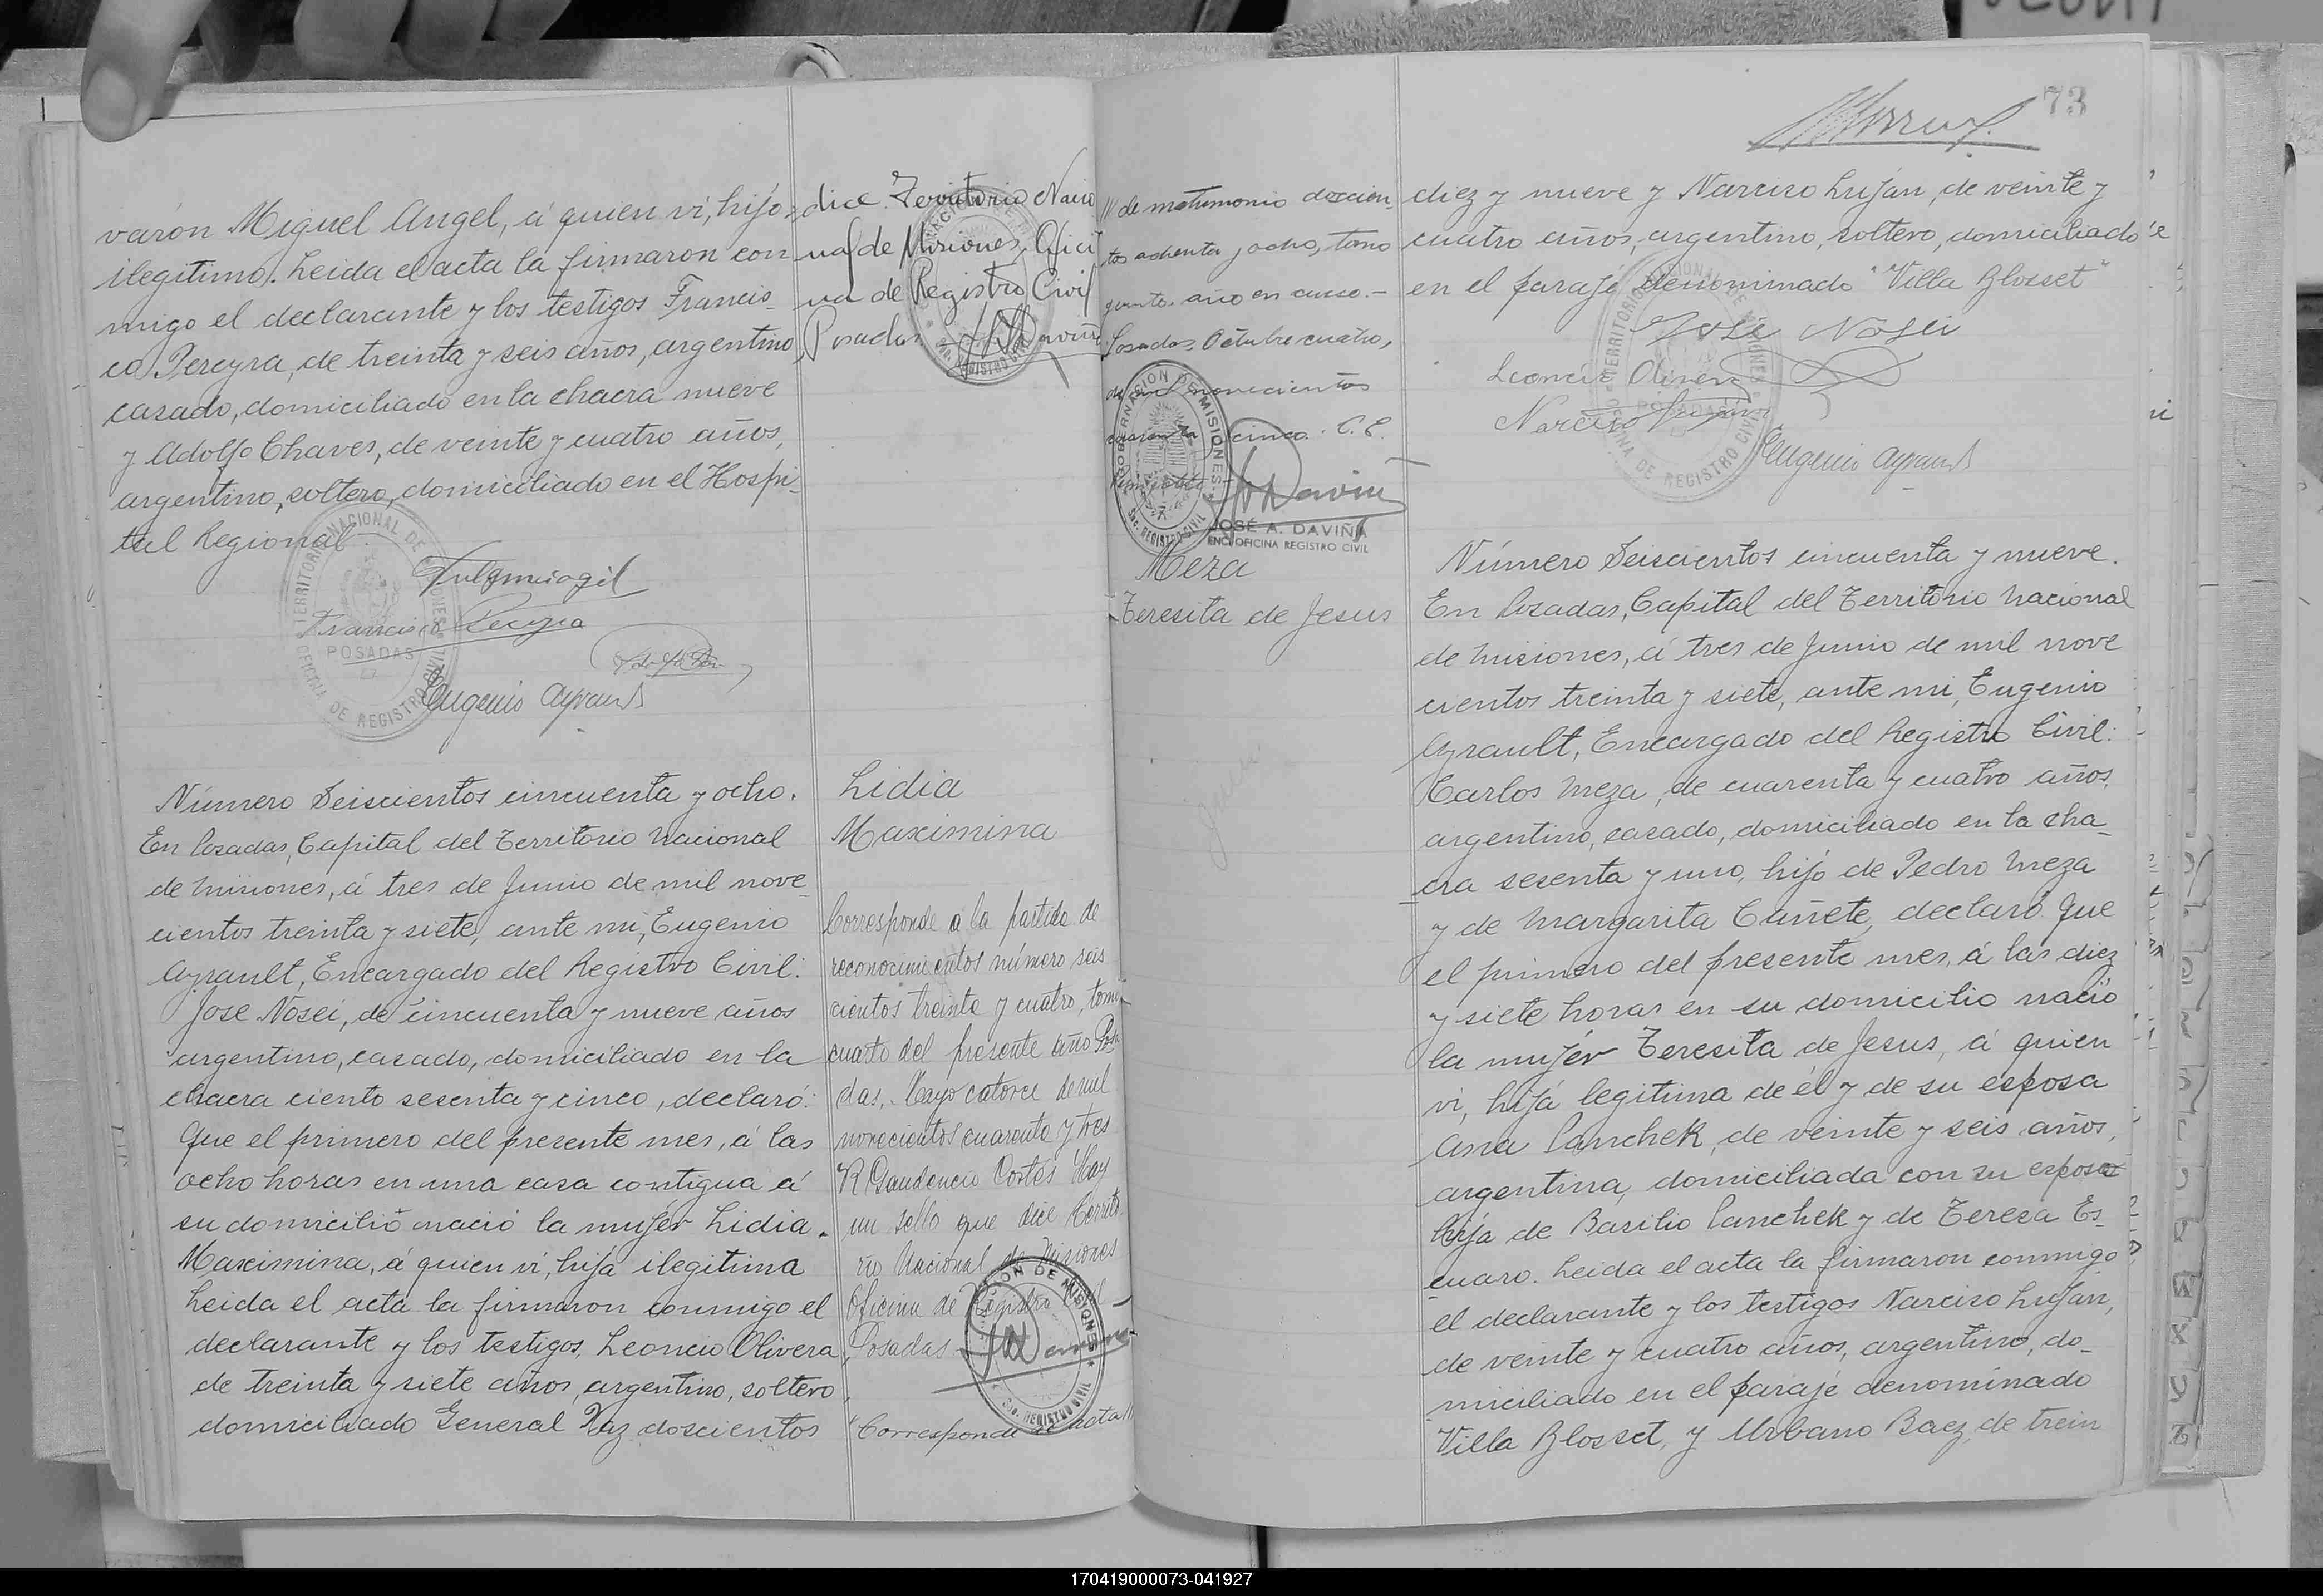 varón Miguel Angel, á quien vi, hijo
ilegitimo. Leida el acta la firmaron con
migo el declarante y los testigos Francis-
co Pereyra, de treinta y seis años, argentino
casado, domiciliado en la chacra nueve
y Adolfo Chaves, de veinte y cuatro años,
argentino, soltero, domiciliado en el Hospi-
tal Regional
Francisco Pereyra
Eugenio Ayrault
TERRITORIO NACIONAL DE MISIONES
POSADAS
OFICINA DE REGISTRO CIVIL
dice Territorio Nacio
nal de Misiones, Ofici
na de Registro Civil
Posadas
Número Seiscientos cincuenta y ocho.
En Posadas, Capital del Territorio Nacional
de Misiones, á tres de Junio de mil nove-
cientos treinta y siete, ante mi, Eugenio
Ayrault, Encargado del Registro Civil:
José Nosei, de cincuenta y nueve años
argentino, casado, domiciliado en la
chacra ciento sesenta y cinco, declaró:
Que el primero del presente mes, á las
ocho horas en una casa contigua á
su domicilio nació la mujer Lidia
Maximina, á quien vi, hija ilegitima
Leida el acta la firmaron conmigo el
declarante y los testigos, Leoncio Olivera,
de treinta y siete años, argentino, soltero,
domiciliado General Paz doscientos
Lidia
Maximina
Corresponde a la partida de
reconocimientos número seis
cientos treinta y cuatro, tomo
cuarto del presente año Posa
das, Mayo catorce de mil
novecientos cuarenta y tres
R Gaudencio Cortés Hay
un sello que dice Territo
rio Nacional de Misiones
Oficina de Registro Civil
Posadas
Corresponde acta///
/// de matrimonio doscien-
tos ochenta y ocho, tomo
quinto, año en curso.-
Posadas, Octubre cuatro,
de mil novecientos
cuarenta cinco. C.C.
GOBERNACION DE MISIONES
Sec. REGISTRO CIVIL
JOSÉ A. DAVIÑA
ENC. OFICINA REGISTRO CIVIL
Meza
Teresita de Jesus
73
diez y nueve y Narciso Luján, de veinte y
cuatro años, argentino, soltero, domiciliado
en el paraje denominado "Villa Blosset"
José Nosei
Leoncio Olivera
Narciso Luján
Eugenio Ayrault
Número Seiscientos cincuenta y nueve.
En Posadas, Capital del Territorio Nacional
de Misiones, á tres de Junio de mil nove
cientos treinta y siete, ante mi, Eugenio
Ayrault, Encargado del Registro Civil:
Carlos Meza, de cuarenta y cuatro años,
argentino, casado, domiciliado en la cha-
cra sesenta y uno, hijo de Pedro Meza
y de Margarita Cañete, declaró: Que
el primero del presente mes, á las diez
y siete horas en su domicilio nació
la mujer Teresita de Jesus, á quien
vi, hija legitima de él y de su esposa
Ana Panchek, de veinte y seis años,
argentina, domiciliada con su esposo
hija de Basilio Panchek y de Teresa Es-
cuaro. Leida el acta la firmaron conmigo
el declarante y los testigos Narciso Luján,
de veinte y cuatro años, argentino, do-
miciliado en el paraje denominado
Villa Blosset, y Urbano Baez, de trein
W
X
Y
Z
170419000073-041927